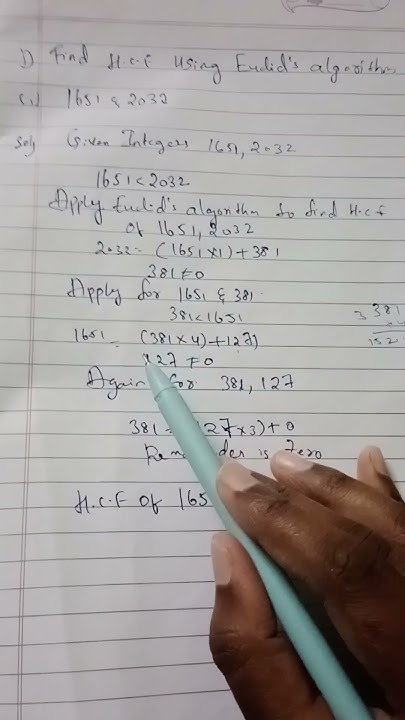 1) Find H.C.F Using Euclid's algorithm
(i) 1651 & 2032
Sol) Given Integers 1651, 2032
1651 < 2032
Apply Euclid's algorithm to find H.C.F
of 1651, 2032
2032 = (1651 × 1) + 381
381 ≠ 0
Apply for 1651 & 381
381 < 1651
3 381
1651 = (381 × 4) + 127)
152
127 ≠ 0
Again for 381, 127
381 = 27 × 3) + 0
is Zero
H.C.F of 165